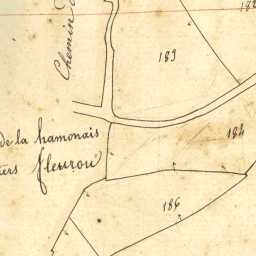 Chemin
183
de la hamonais
184
fleurou
186